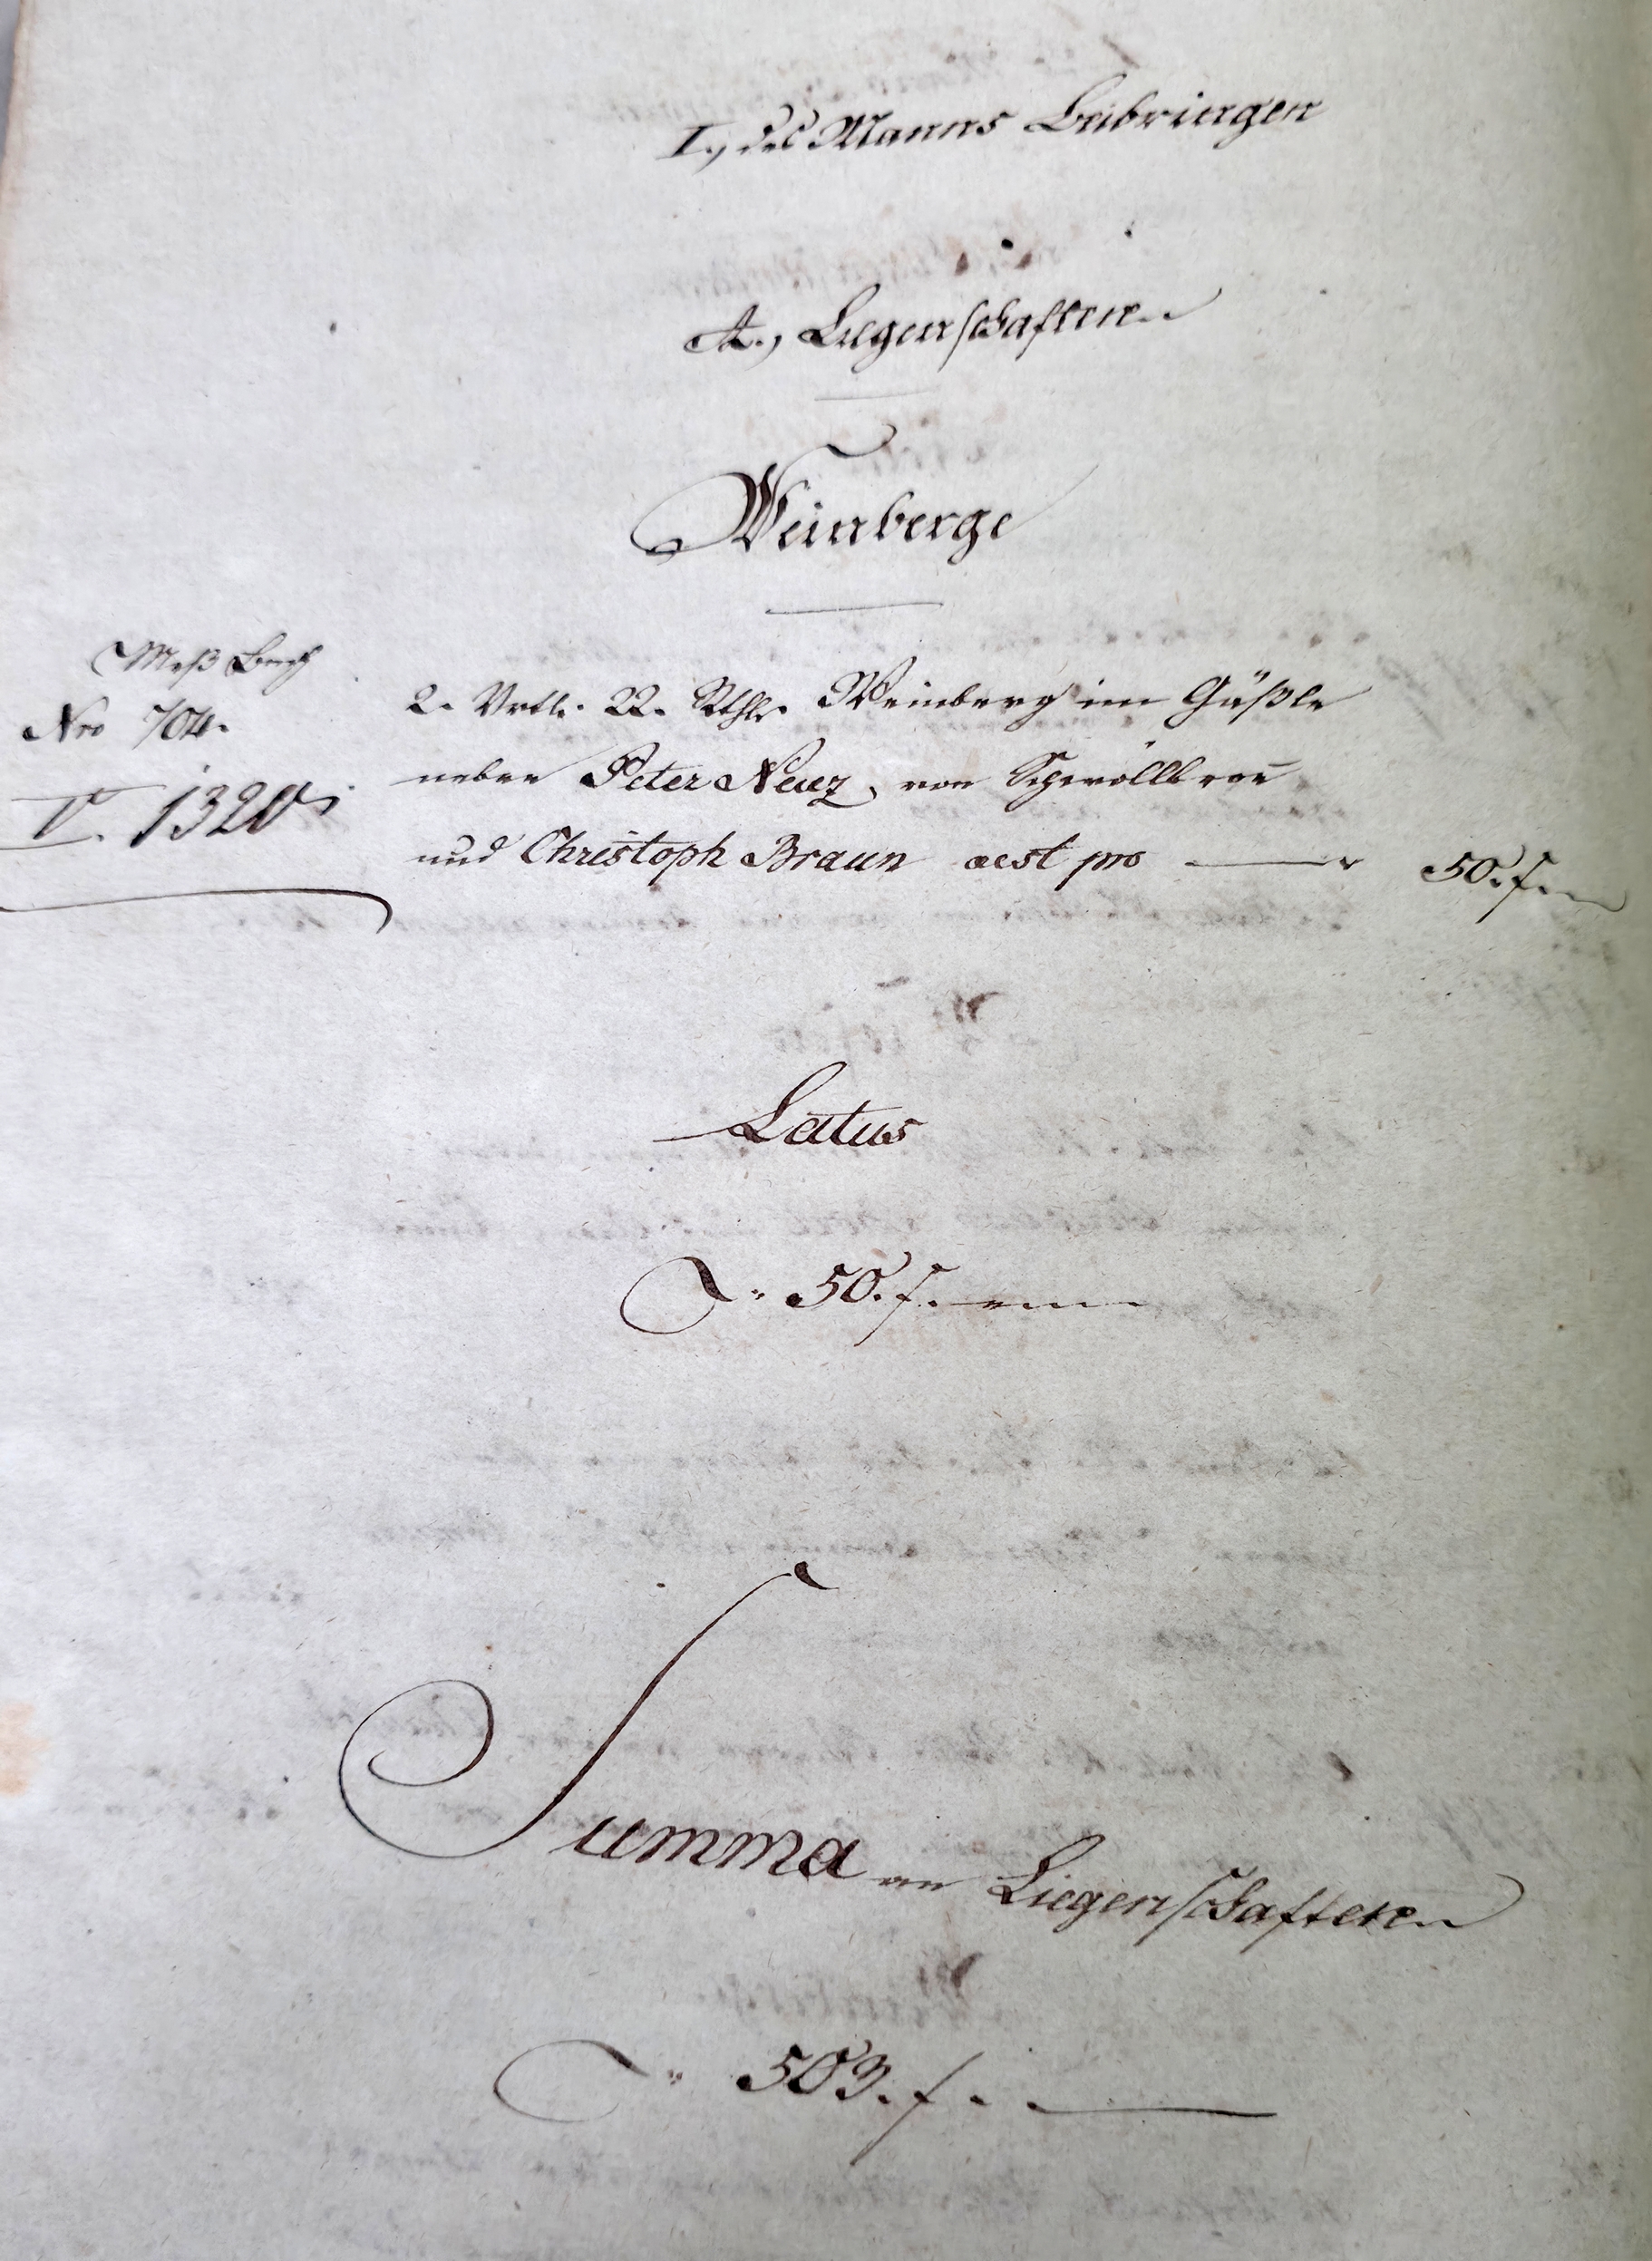 I., des Manns Beibringen
A., Liegenschaften
Weinberge
Meß Buch
Nro 704.
V. 1320
2. Vrtl. 22. Rthl. Weinberg im Gäßle
neben Peter Neuz, von Schwöllbron̄
und Christoph Braun aest pro
50. f.
Latus
50. f.
Summa an Liegenschaften
503. f.